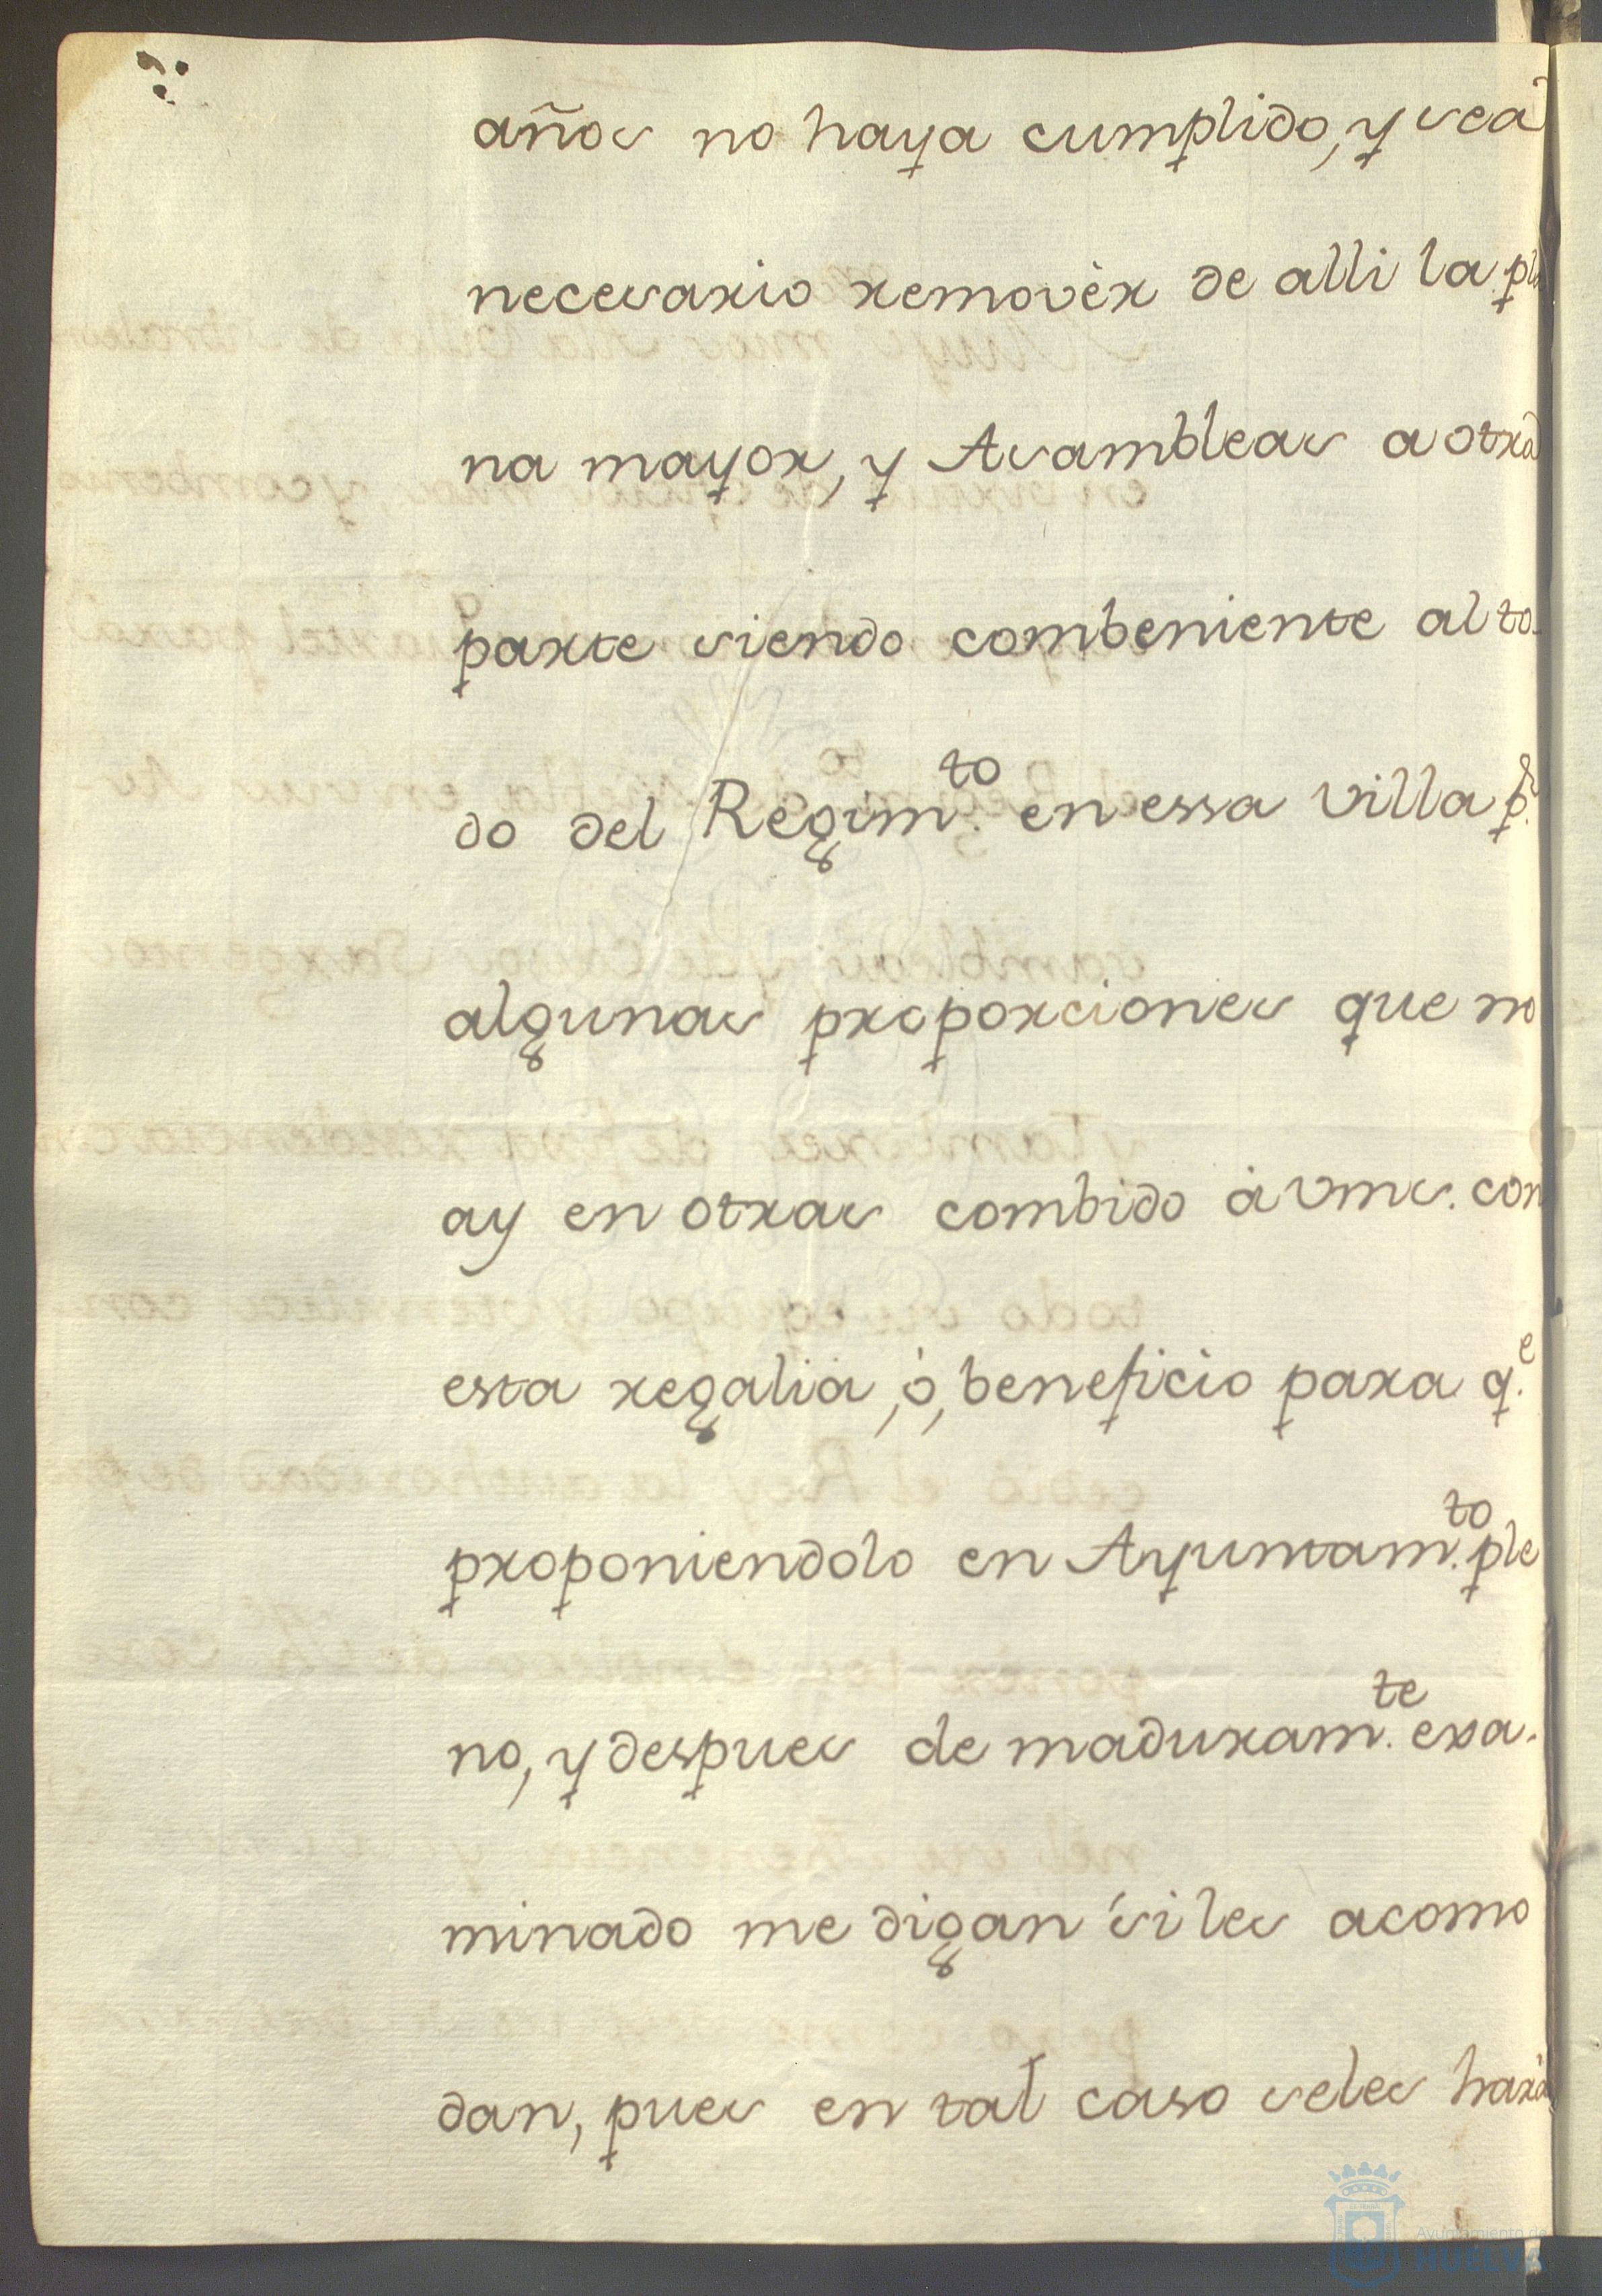 años no haya cumplido, y sea
necesario removèr de alli la pla
na mayor, y Asambleas a otra
parte siendo combeniente al to-
do del Regim.to en essa villa p.r
algunas proporciones que no
ay en otras combido à vms. con
esta regalia, ò, beneficio para q.e
proponiendolo en Ayuntam.to ple
no, y despues de maduram.te exa-
minado me digan si les acomo
dan, pues en tal caso seles harà
Ayuntamiento de
HUELVA